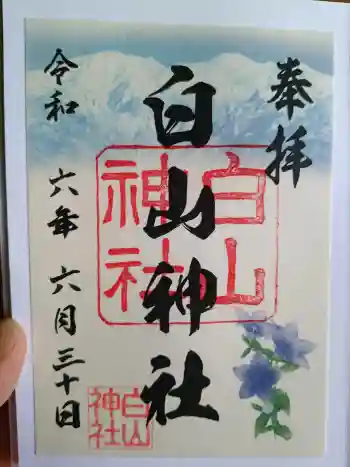 奉拝
白山神社
令和 六年 六月 三十日
白山
神社
白山
神社